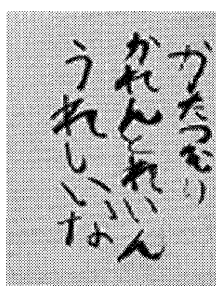 かたつむり
かれんとれいん
うれしいな